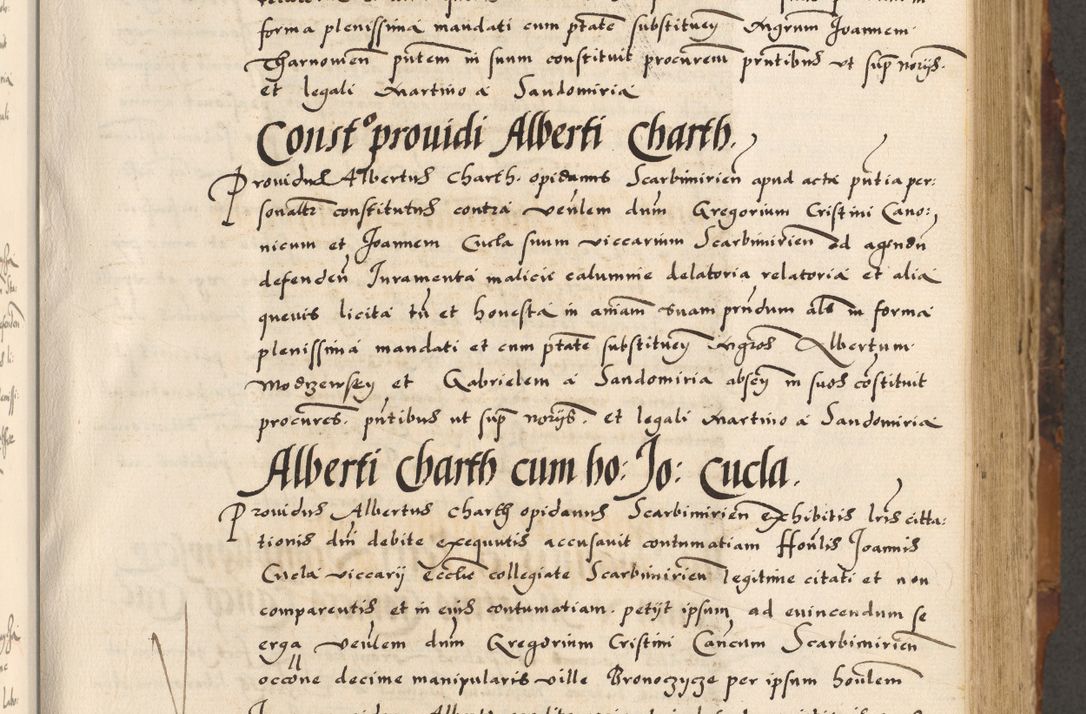 forma plenissima mandati cum ptate substitueń Mgrum Joannem
Tharnowień pntem in suum constituit procurem pntibus ut sup norijs.
et legali Martino a Sandomiria
Const.º prouidi Alberti Charth.
Prouidus Albertus Charth. opidanus Scarbimirień apud acta pntia per:
sonalr constitutus contra Venlem dnm Gregorium Cristini Cano:
nicum et Joannem Cucla suum viccarium Scarbimirień ad agendū
defendeń Juramenta malicie calumnie delatoria relatoria et alia
queuis licita tn et honesta in aniam suam prndum als in forma
plenissima mandati et cum ptate substitueń Mgros Albertum
Modrzewsky et Gabrielem a Sandomiria abseń in suos cōstituit
procures. pntibus ut sup norijs. et legali Martino a Sandomiria
Alberti Charth cum ho: Jo: Cucla.
Prouidus Albertus Charth opidanus Scarbimirień exhibitis lris citta:
tionis dni debite exequutis accusauit contumatiam Honlis Joannis
Cucla viccarij Ecclie collegiate Scarbimirień legitime citati et non
comparentis et in eius contumatiam. petijt ipsum ad euincendum se
erga Venlem dnm Gregorium Cristini Cancum Scarbimirień
occōne decime manipularis ville Bronoczycze per ipsum honlem